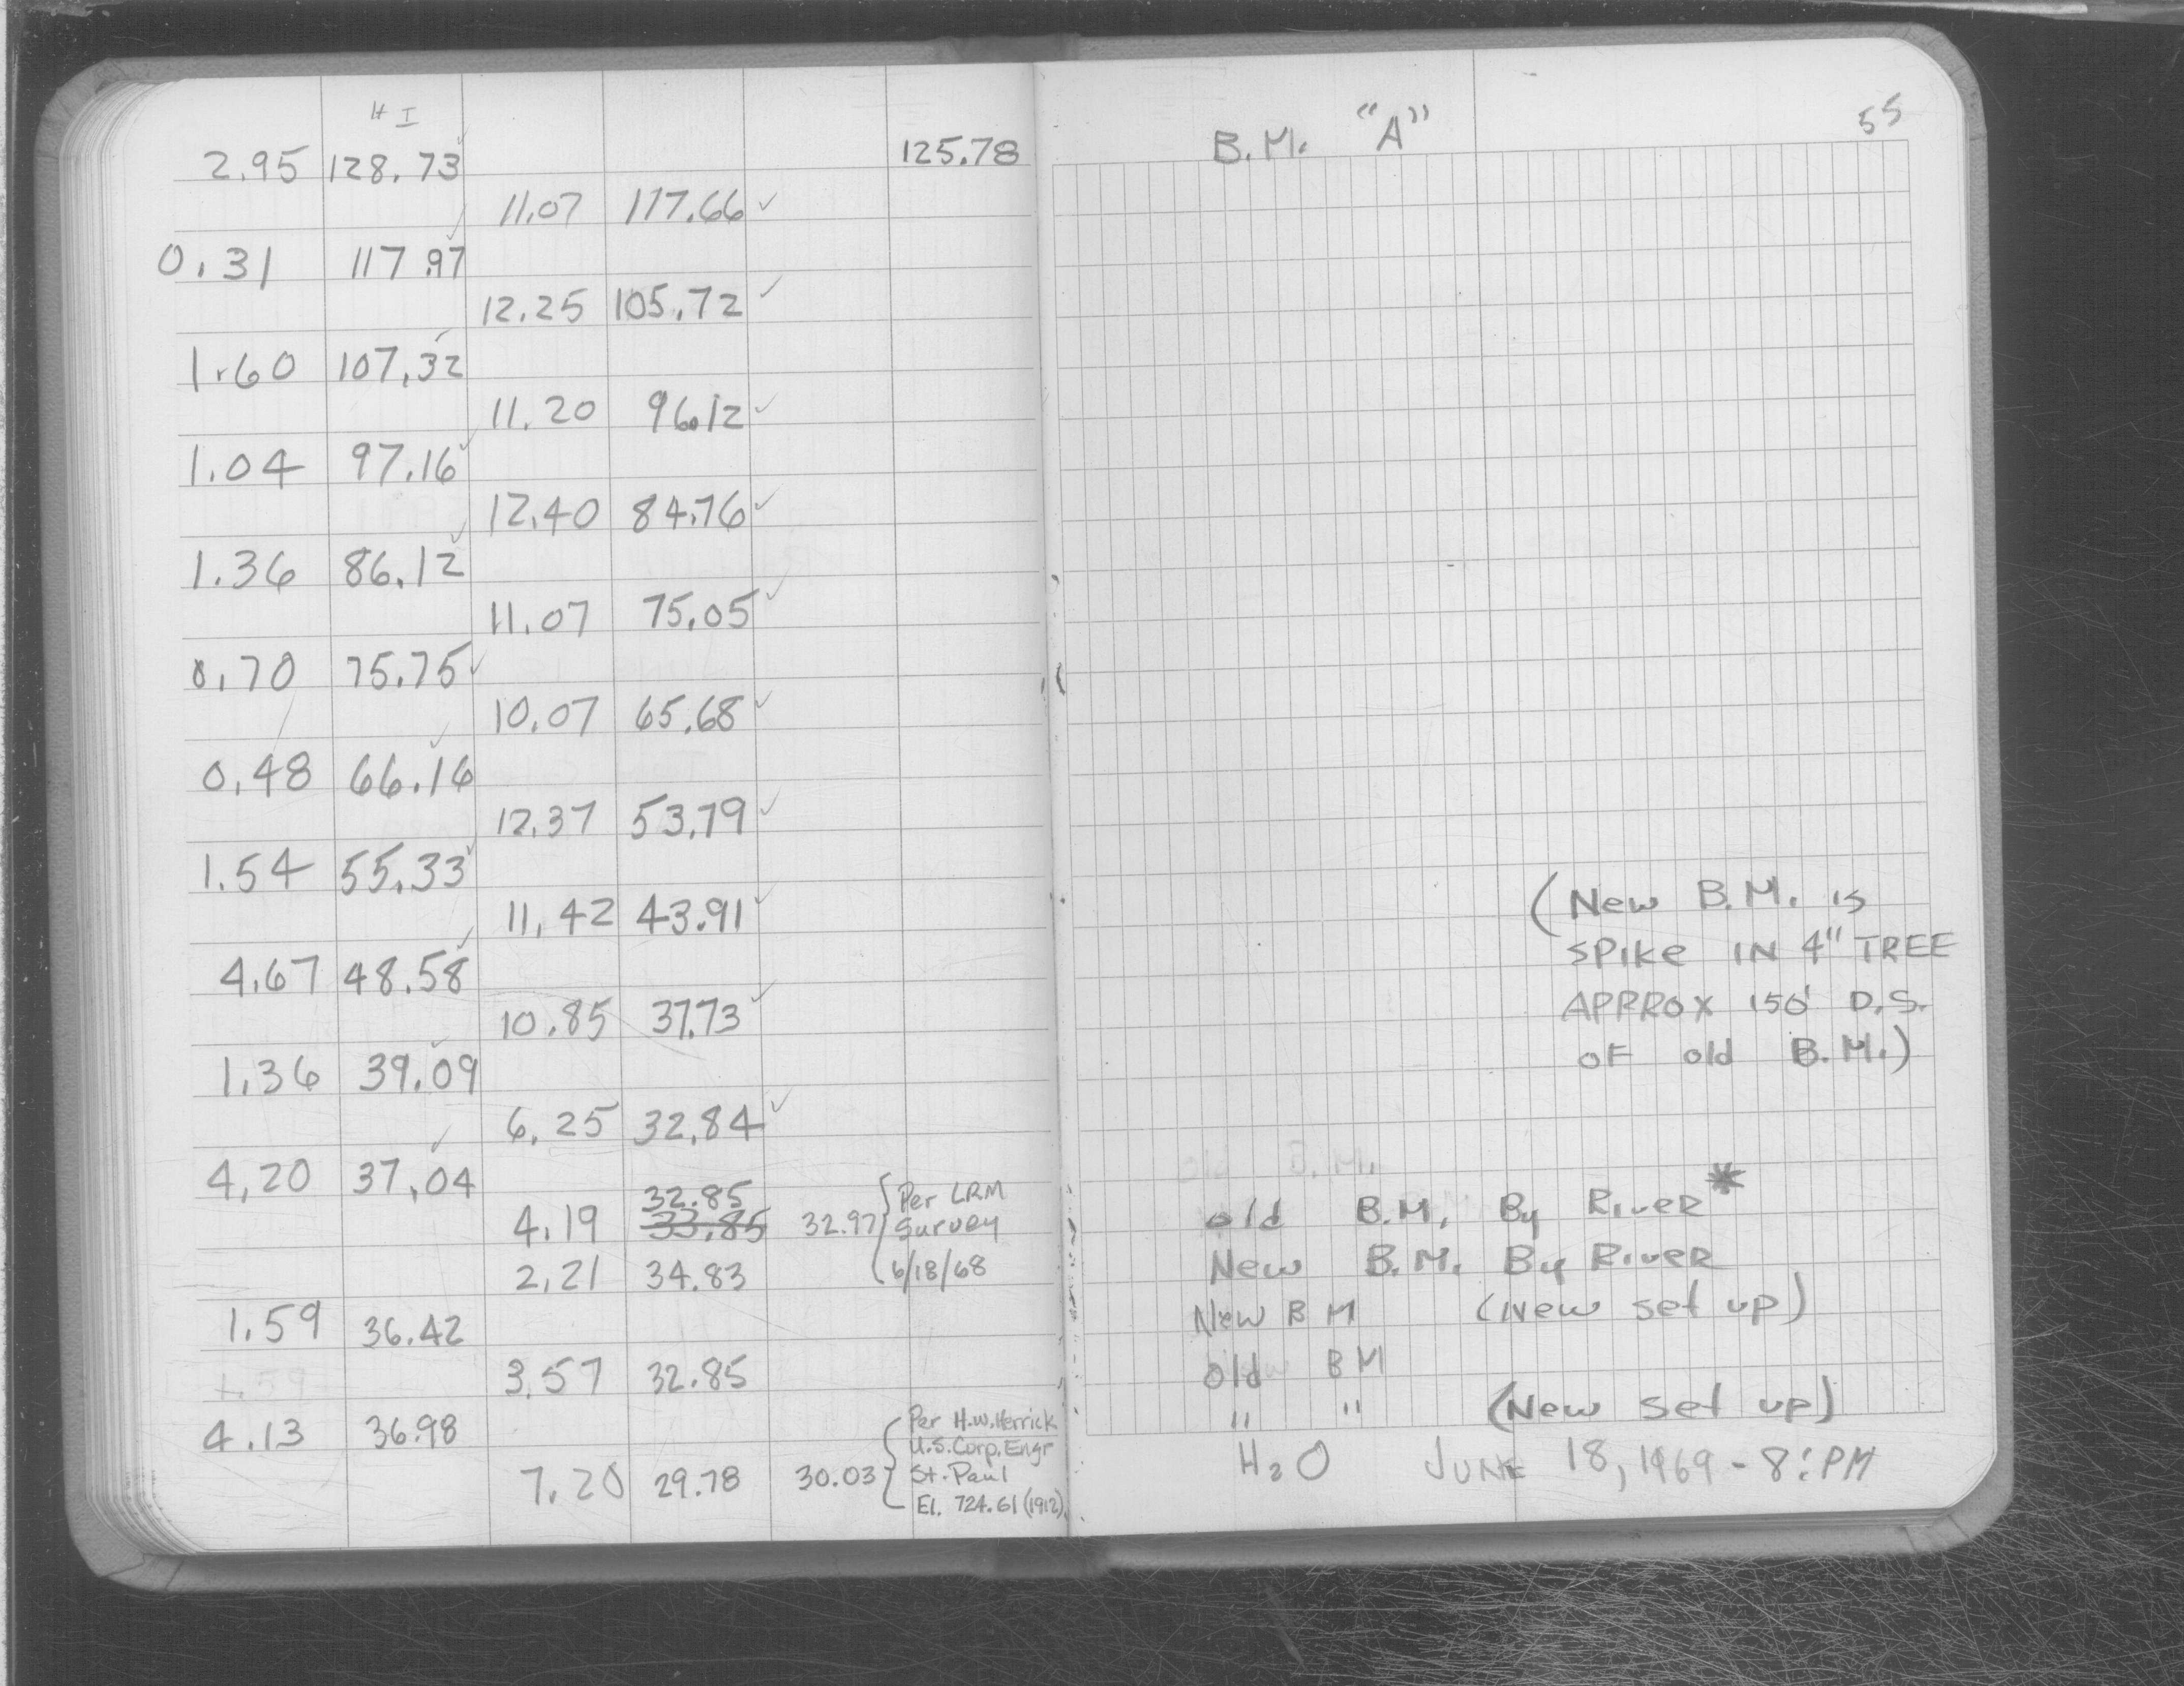 H I
2.95 128.73 125.78 B.M. "A" 55
11.07 117.66 ✓
0.31 117.97
12.25 105.72 ✓
1.60 107.32
11.20 96.12 ✓
1.04 97.16
12.40 84.76 ✓
1.36 86.12
11.07 75.05 ✓
0.70 75.75 ✓
10.07 65.68 ✓
0.48 66.16
12.37 53.79 ✓
1.54 55.33
11.42 43.91 ✓
4.67 48.58
10.85 37.73 ✓
1.36 39.09
6.25 32.84 ✓
4.20 37.04
32.85
4.19 33.85 32.97 { Per LRM
Survey
6/18/68
2.21 34.83
1.59 36.42
1.59
3.57 32.85
4.13 36.98
7.20 29.78 30.03 { Per H.W. Herrick
U.S. Corp. Engr
St. Paul
El. 724.61 (1912)
(New B.M. is
SPIKE IN 4" TREE
APPROX 150' D.S.
OF old B.M.)
old B.M. By River *
New B.M. By River
New B M (New set up)
old B M
" " (New set up)
H2O JUNE 18, 1969 - 8:PM